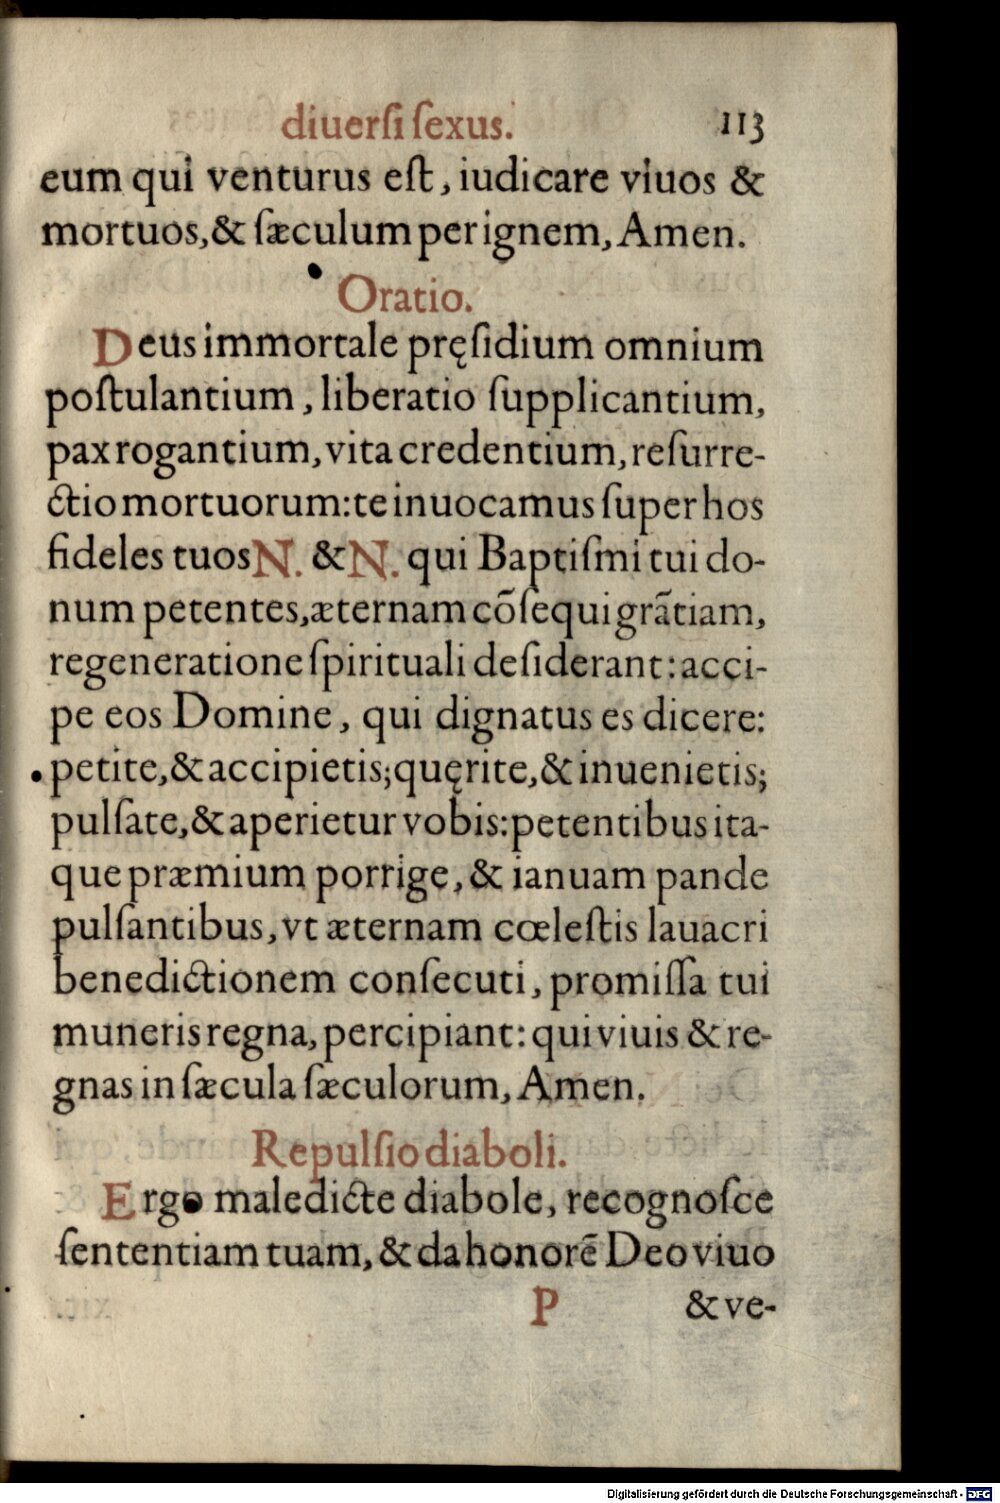 diuerſi ſexus. 113
eum qui venturus eſt, iudicare viuos &
mortuos, & ſæculum per ignem, Amen.
Oratio.
Deus immortale pręſidium omnium
poſtulantium, liberatio ſupplicantium,
pax rogantium, vita credentium, reſurre-
ctio mortuorum: te inuocamus ſuper hos
fideles tuos N. & N. qui Baptiſmi tui do-
num petentes, æternam cōſequi grātiam,
regeneratione ſpirituali deſiderant: acci-
pe eos Domine, qui dignatus es dicere:
petite, & accipietis; quęrite, & inuenietis;
pulſate, & aperietur vobis: petentibus ita-
que præmium porrige, & ianuam pande
pulſantibus, vt æternam cœleſtis lauacri
benedictionem conſecuti, promiſſa tui
muneris regna, percipiant: qui viuis & re-
gnas in ſæcula ſæculorum, Amen.
Repulſio diaboli.
Ergo maledicte diabole, recognoſce
ſententiam tuam, & da honorē Deo viuo
P & ve-
Digitalisierung gefördert durch die Deutsche Forschungsgemeinschaft - DFG